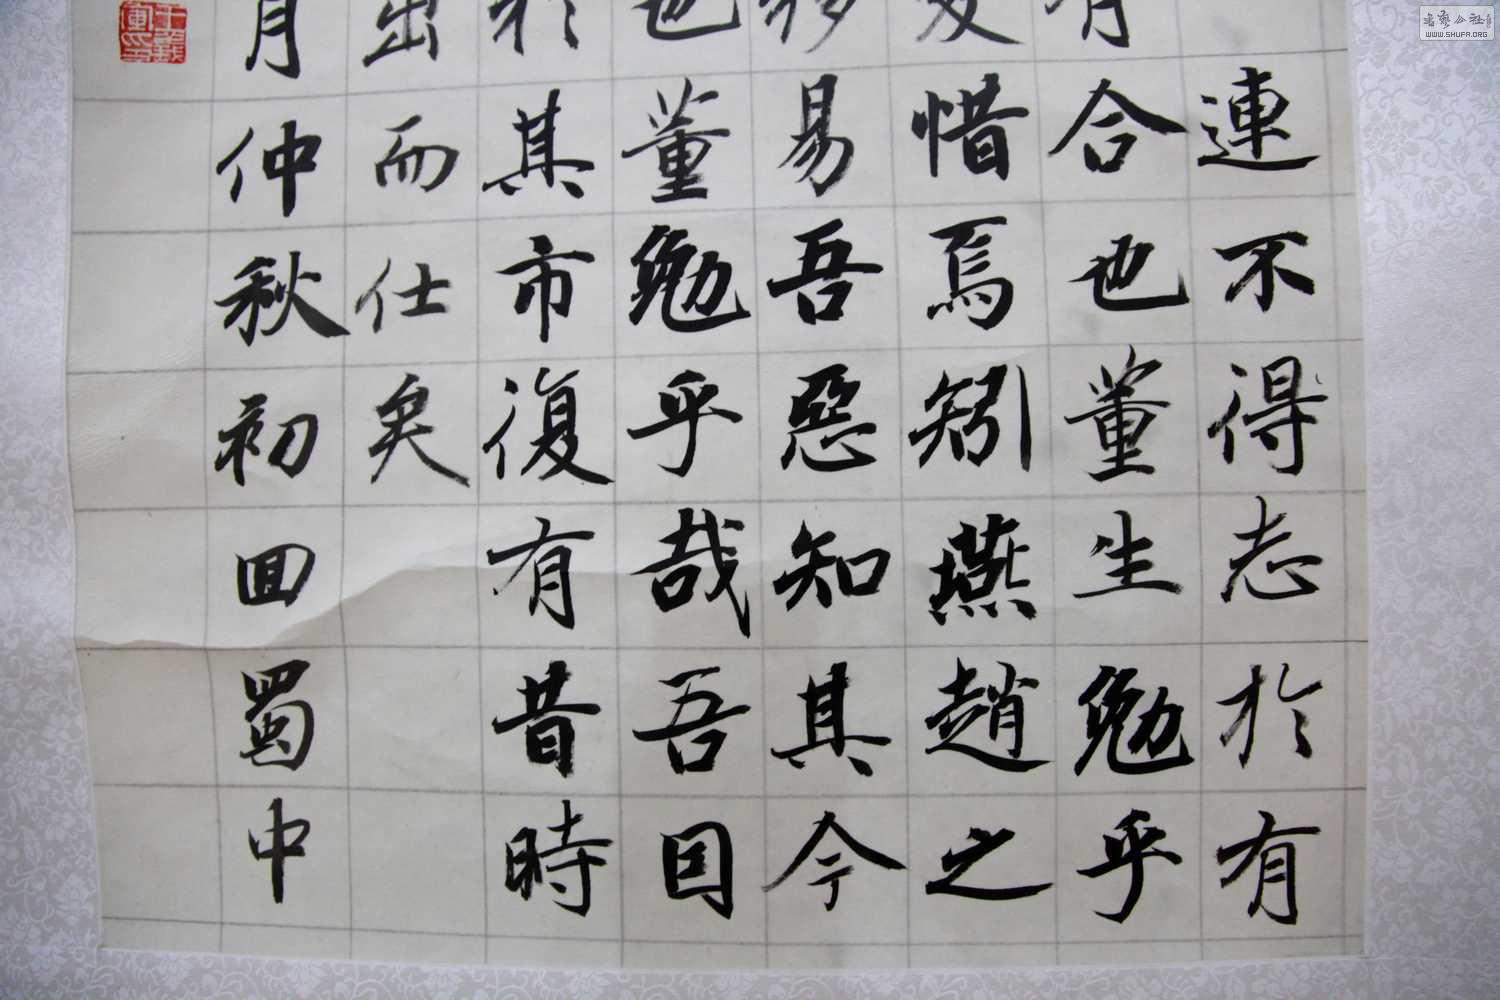 連不得志於有
有合也董生勉乎
夫惜焉矧燕趙之
移易吾惡知其今
也董勉乎哉吾因
於其市復有昔時
出而仕矣
月仲秋初回蜀中
WWW.SHUFA.ORG